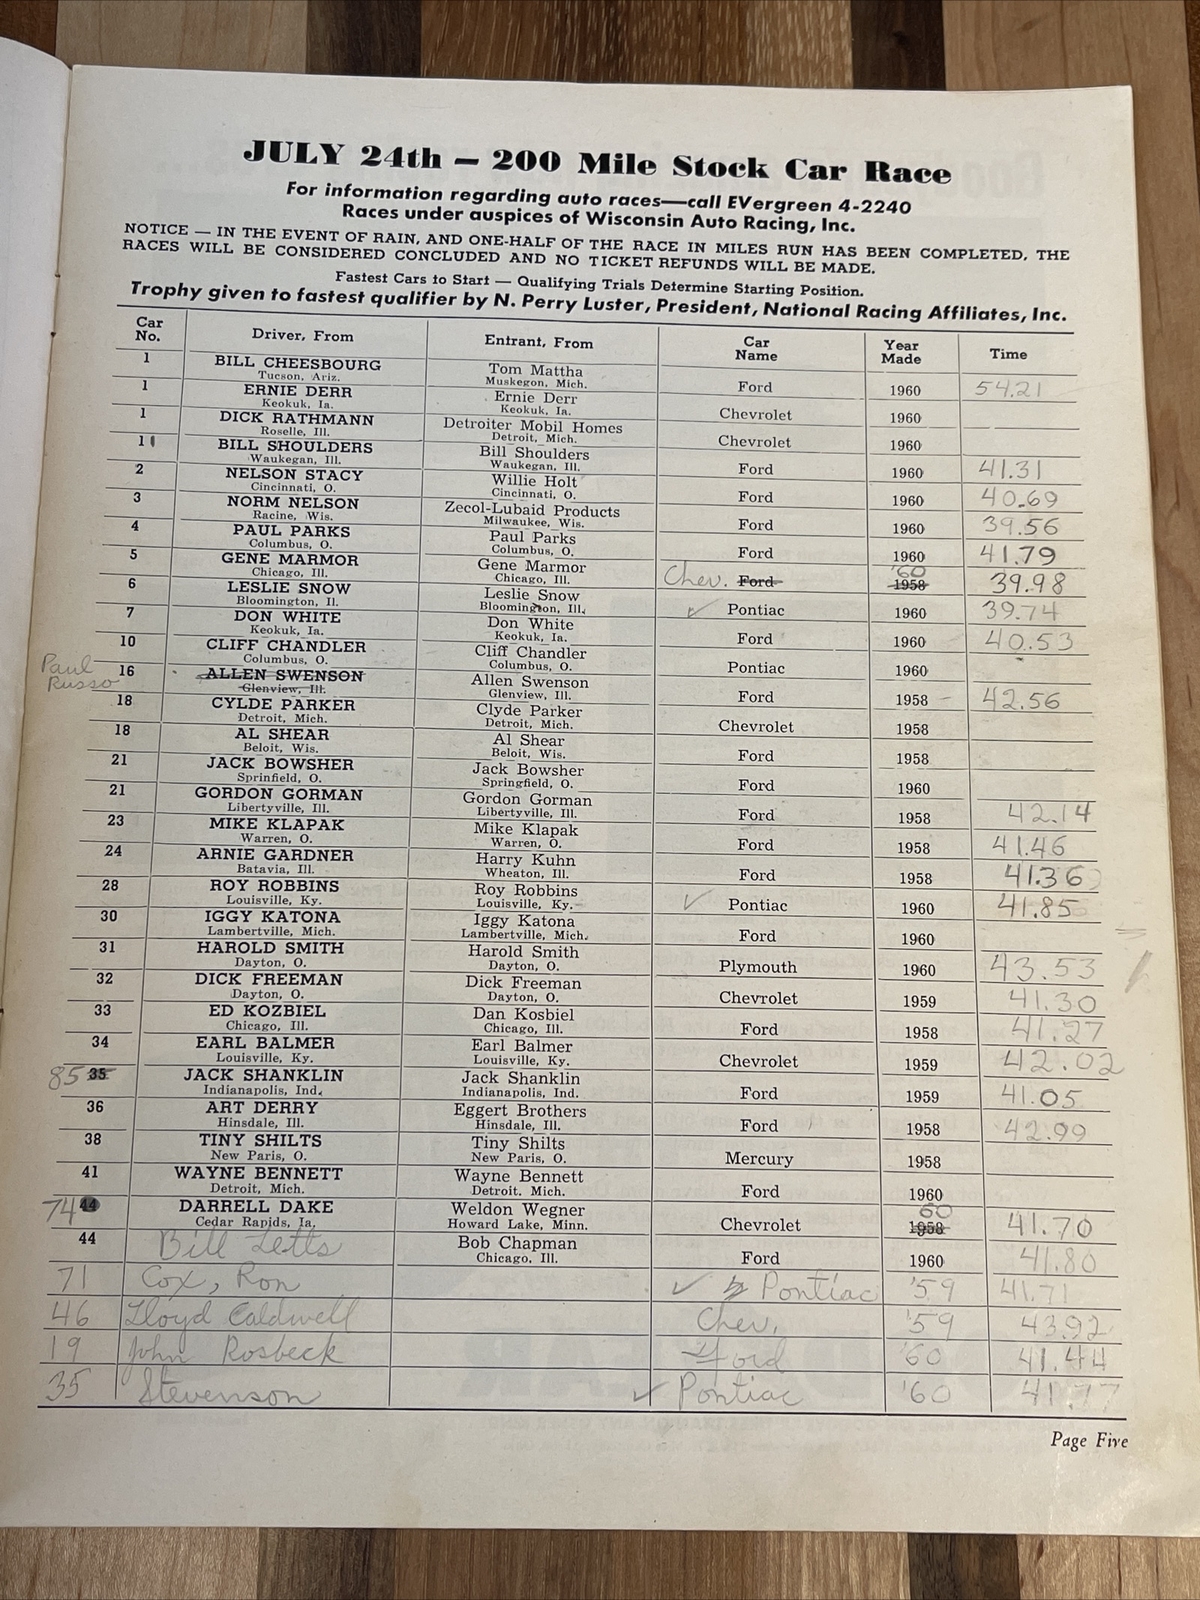 JULY 24th — 200 Mile Stock Car Race
For information regarding auto races—call EVergreen 4-2240
Races under auspices of Wisconsin Auto Racing, Inc.
NOTICE — IN THE EVENT OF RAIN, AND ONE-HALF OF THE RACE IN MILES RUN HAS BEEN COMPLETED, THE
RACES WILL BE CONSIDERED CONCLUDED AND NO TICKET REFUNDS WILL BE MADE.
Fastest Cars to Start — Qualifying Trials Determine Starting Position.
Trophy given to fastest qualifier by N. Perry Luster, President, National Racing Affiliates, Inc.
Car No. Driver, From Entrant, From Car Name Year Made Time
1 BILL CHEESBOURG Tom Mattha Ford 1960 54.21
Tucson, Ariz. Muskegon, Mich.
1 ERNIE DERR Ernie Derr Chevrolet 1960
Keokuk, Ia. Keokuk, Ia.
1 DICK RATHMANN Detroiter Mobil Homes Chevrolet 1960
Roselle, Ill. Detroit, Mich.
11 BILL SHOULDERS Bill Shoulders Ford 1960 41.31
Waukegan, Ill. Waukegan, Ill.
2 NELSON STACY Willie Holt Ford 1960 40.69
Cincinnati, O. Cincinnati, O.
3 NORM NELSON Zecol-Lubaid Products Ford 1960 39.56
Racine, Wis. Milwaukee, Wis.
4 PAUL PARKS Paul Parks Ford 1960 41.79
Columbus, O. Columbus, O.
5 GENE MARMOR Gene Marmor Chev. Ford '60 1958 39.98
Chicago, Ill. Chicago, Ill.
6 LESLIE SNOW Leslie Snow ✓ Pontiac 1960 39.74
Bloomington, Il. Bloomington, Ill.
7 DON WHITE Don White Ford 1960 40.53
Keokuk, Ia. Keokuk, Ia.
10 CLIFF CHANDLER Cliff Chandler Pontiac 1960
Columbus, O. Columbus, O.
Paul Russo 16 ALLEN SWENSON Allen Swenson Ford 1958 42.56
Glenview, Ill. Glenview, Ill.
18 CYLDE PARKER Clyde Parker Chevrolet 1958
Detroit, Mich. Detroit, Mich.
18 AL SHEAR Al Shear Ford 1958
Beloit, Wis. Beloit, Wis.
21 JACK BOWSHER Jack Bowsher Ford 1960
Sprinfield, O. Springfield, O.
21 GORDON GORMAN Gordon Gorman Ford 1958 42.14
Libertyville, Ill. Libertyville, Ill.
23 MIKE KLAPAK Mike Klapak Ford 1958 41.46
Warren, O. Warren, O.
24 ARNIE GARDNER Harry Kuhn Ford 1958 41.36
Batavia, Ill. Wheaton, Ill.
28 ROY ROBBINS Roy Robbins ✓ Pontiac 1960 41.85
Louisville, Ky. Louisville, Ky.
30 IGGY KATONA Iggy Katona Ford 1960
Lambertville, Mich. Lambertville, Mich.
31 HAROLD SMITH Harold Smith Plymouth 1960 43.53
Dayton, O. Dayton, O.
32 DICK FREEMAN Dick Freeman Chevrolet 1959 41.30
Dayton, O. Dayton, O.
33 ED KOZBIEL Dan Kosbiel Ford 1958 41.27
Chicago, Ill. Chicago, Ill.
34 EARL BALMER Earl Balmer Chevrolet 1959 42.02
Louisville, Ky. Louisville, Ky.
85 35 JACK SHANKLIN Jack Shanklin Ford 1959 41.05
Indianapolis, Ind. Indianapolis, Ind.
36 ART DERRY Eggert Brothers Ford 1958 42.99
Hinsdale, Ill. Hinsdale, Ill.
38 TINY SHILTS Tiny Shilts Mercury 1958
New Paris, O. New Paris, O.
41 WAYNE BENNETT Wayne Bennett Ford 1960
Detroit, Mich. Detroit, Mich.
74 44 DARRELL DAKE Weldon Wegner Chevrolet 60 1958 41.70
Cedar Rapids, Ia. Howard Lake, Minn.
44 Bill Letts Bob Chapman Ford 1960 41.80
Chicago, Ill.
71 Cox, Ron ✓ Pontiac '59 41.71
46 Lloyd Caldwell Chev. '59 43.92
19 John Rosbeck Ford '60 41.44
35 Stevenson ✓ Pontiac '60 41.77
Page Five